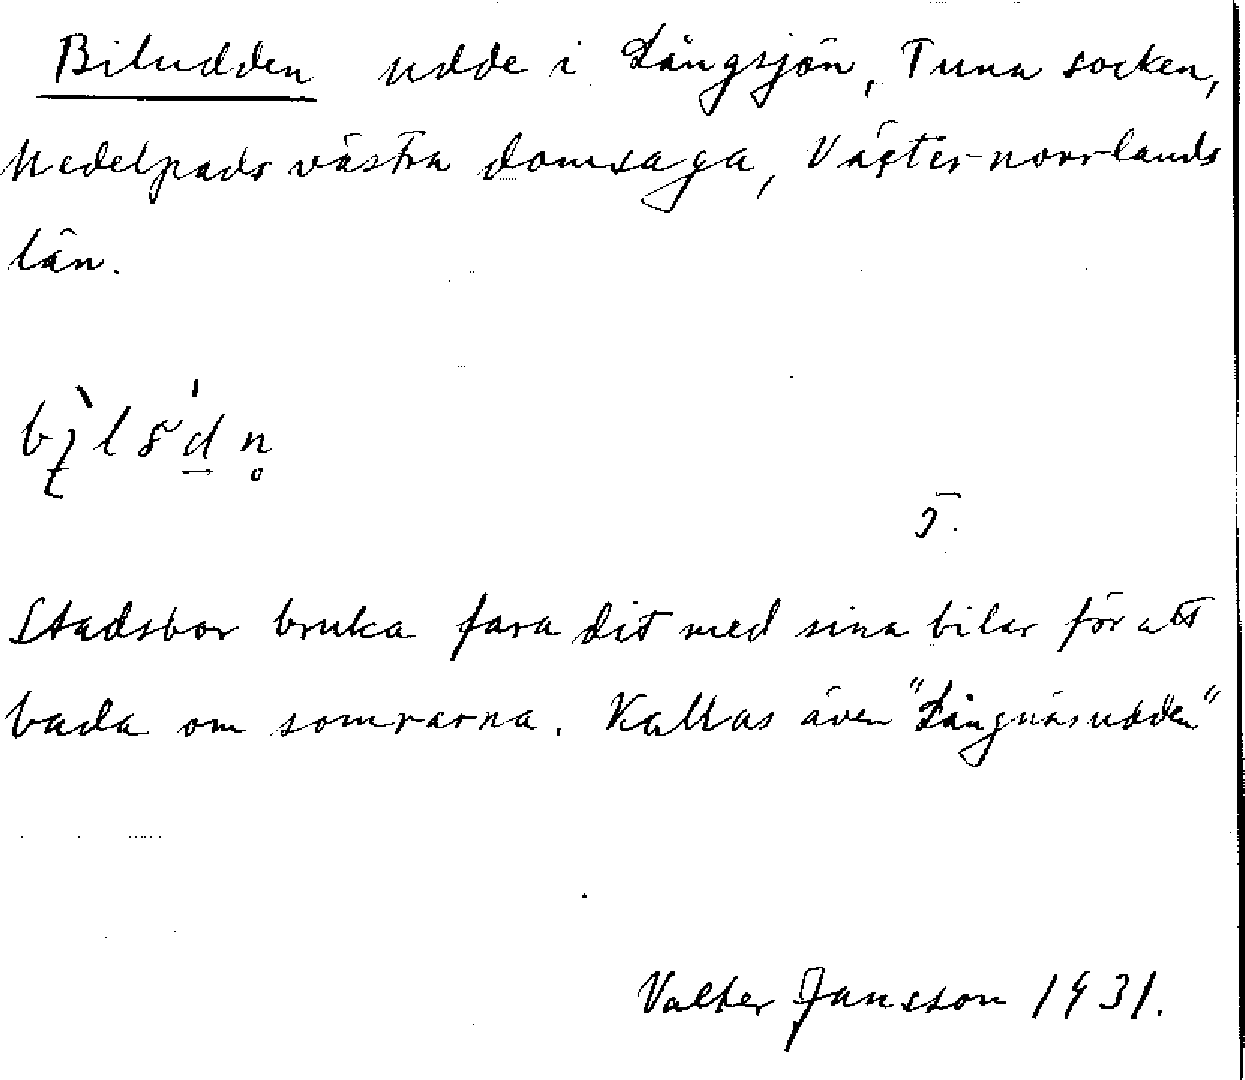 Biludden udde i Långsjön, Tuna socken,
Medelpads västra domsaga, Väster-norrlands
län.
Stadsbor bruka fara dit med sina bilar för att
bada om somrarna. Kallas även "Långnäsudden"
Valter Jansson 1931.